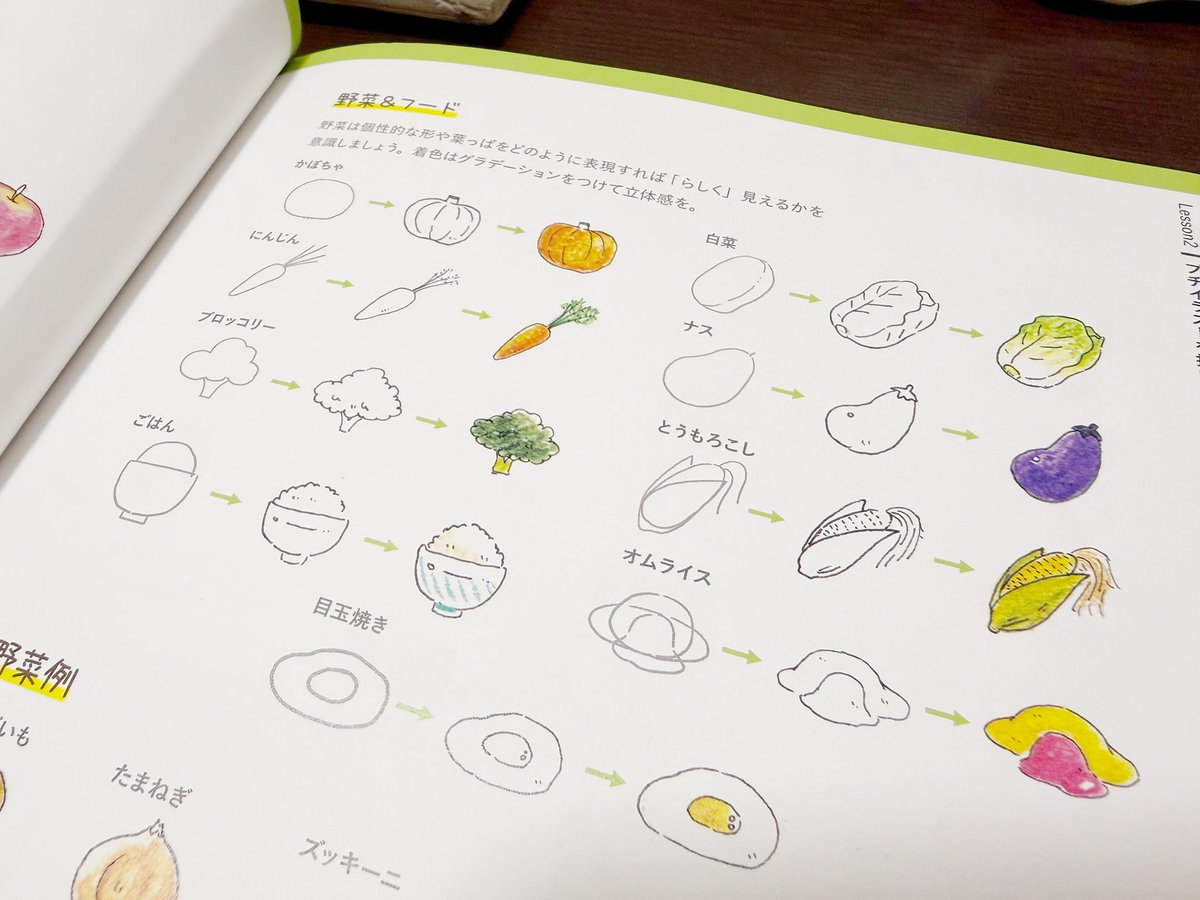 野菜&フード
野菜は個性的な形や葉っぱをどのように表現すれば「らしく」見えるかを
意識しましょう。着色はグラデーションをつけて立体感を。
かぼちゃ
にんじん
ブロッコリー
ごはん
目玉焼き
白菜
ナス
とうもろこし
オムライス
野菜例
いも
たまねぎ
ズッキーニ
Lesson2